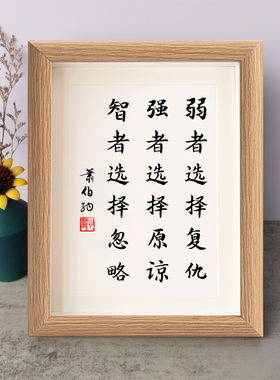 弱者选择复仇
强者选择原谅
智者选择忽略
萧伯纳